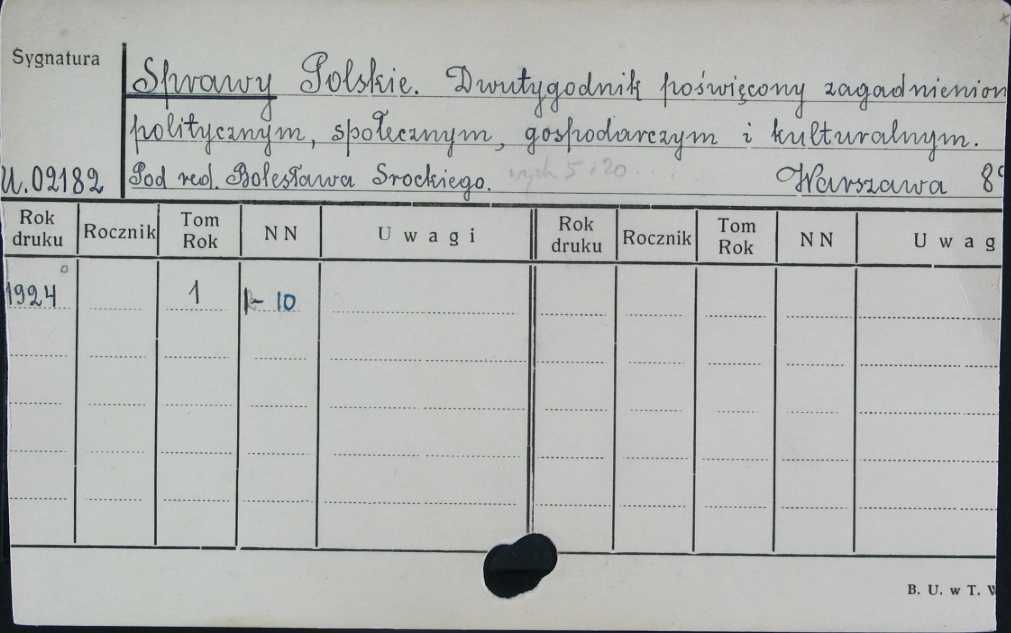 Sygnatura
Sprawy Polskie. Dwutygodnik poświęcony zagadnienion
politycznym, społecznym, gospodarczym i kulturalnym.
U.02182 Pod red. Bolesława Srockiego. 5 i 20 Warszawa 8°
Rok druku Rocznik Tom Rok NN Uwagi Rok druku Rocznik Tom Rok NN Uwag
1924 1 1-10
B. U. w T. W